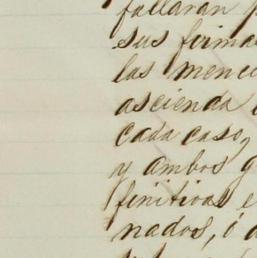 fallaran
sus firma
las menci
ascienda
cada caso,
y ambos
finitivas e
nados, ó